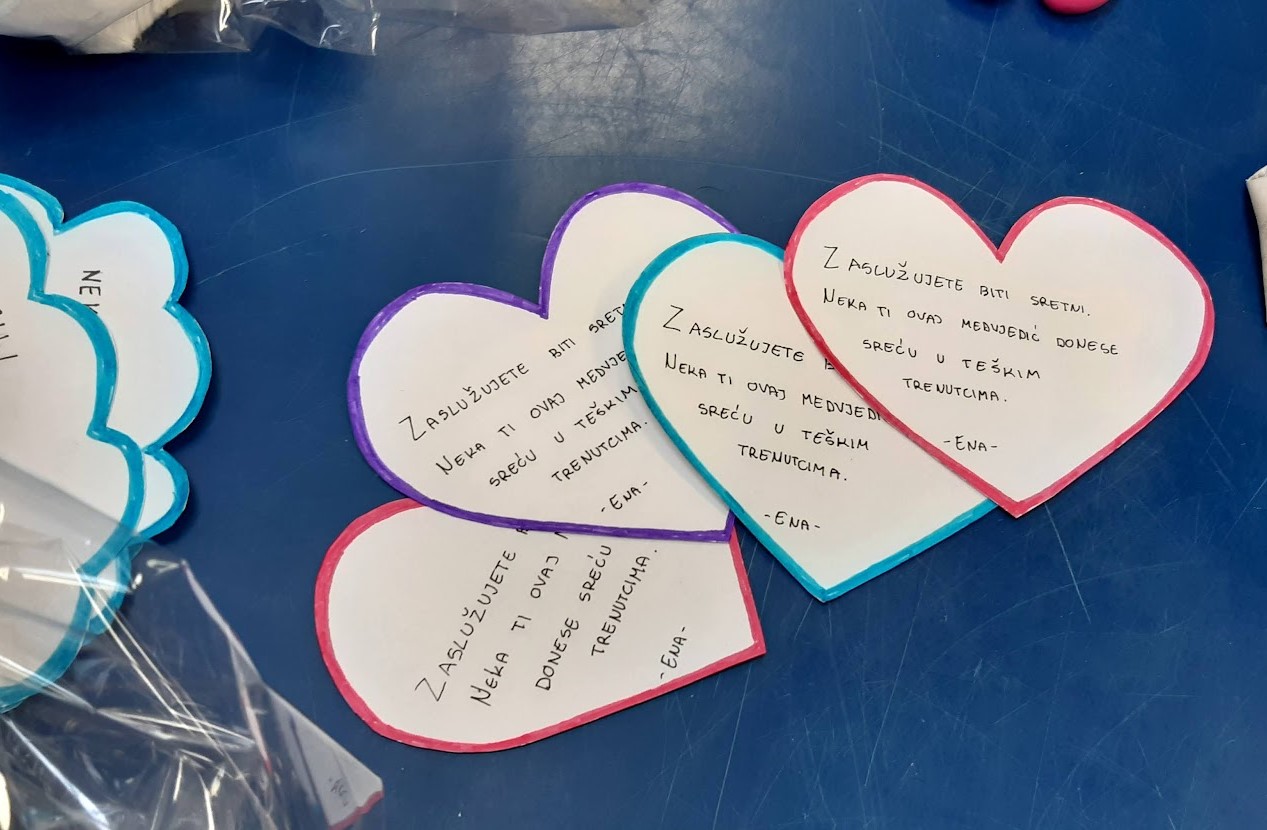 NEK
ZASLUŽUJETE BITI SRET
NEKA TI OVAJ MEDVJE
SREĆU U TEŠKIM
TRENUTCIMA.
-ENA-
ZASLUŽUJETE
NEKA TI OVAJ MEDVJEDI
SREĆU U TEŠKIM
TRENUTCIMA.
-ENA-
ZASLUŽUJETE BITI SRETNI.
NEKA TI OVAJ MEDVJEDIĆ DONESE
SREĆU U TEŠKIM
TRENUTCIMA.
-ENA-
ZASLUŽUJETE
NEKA TI OVAJ
DONESE SREĆU
TRENUTCIMA.
-ENA-